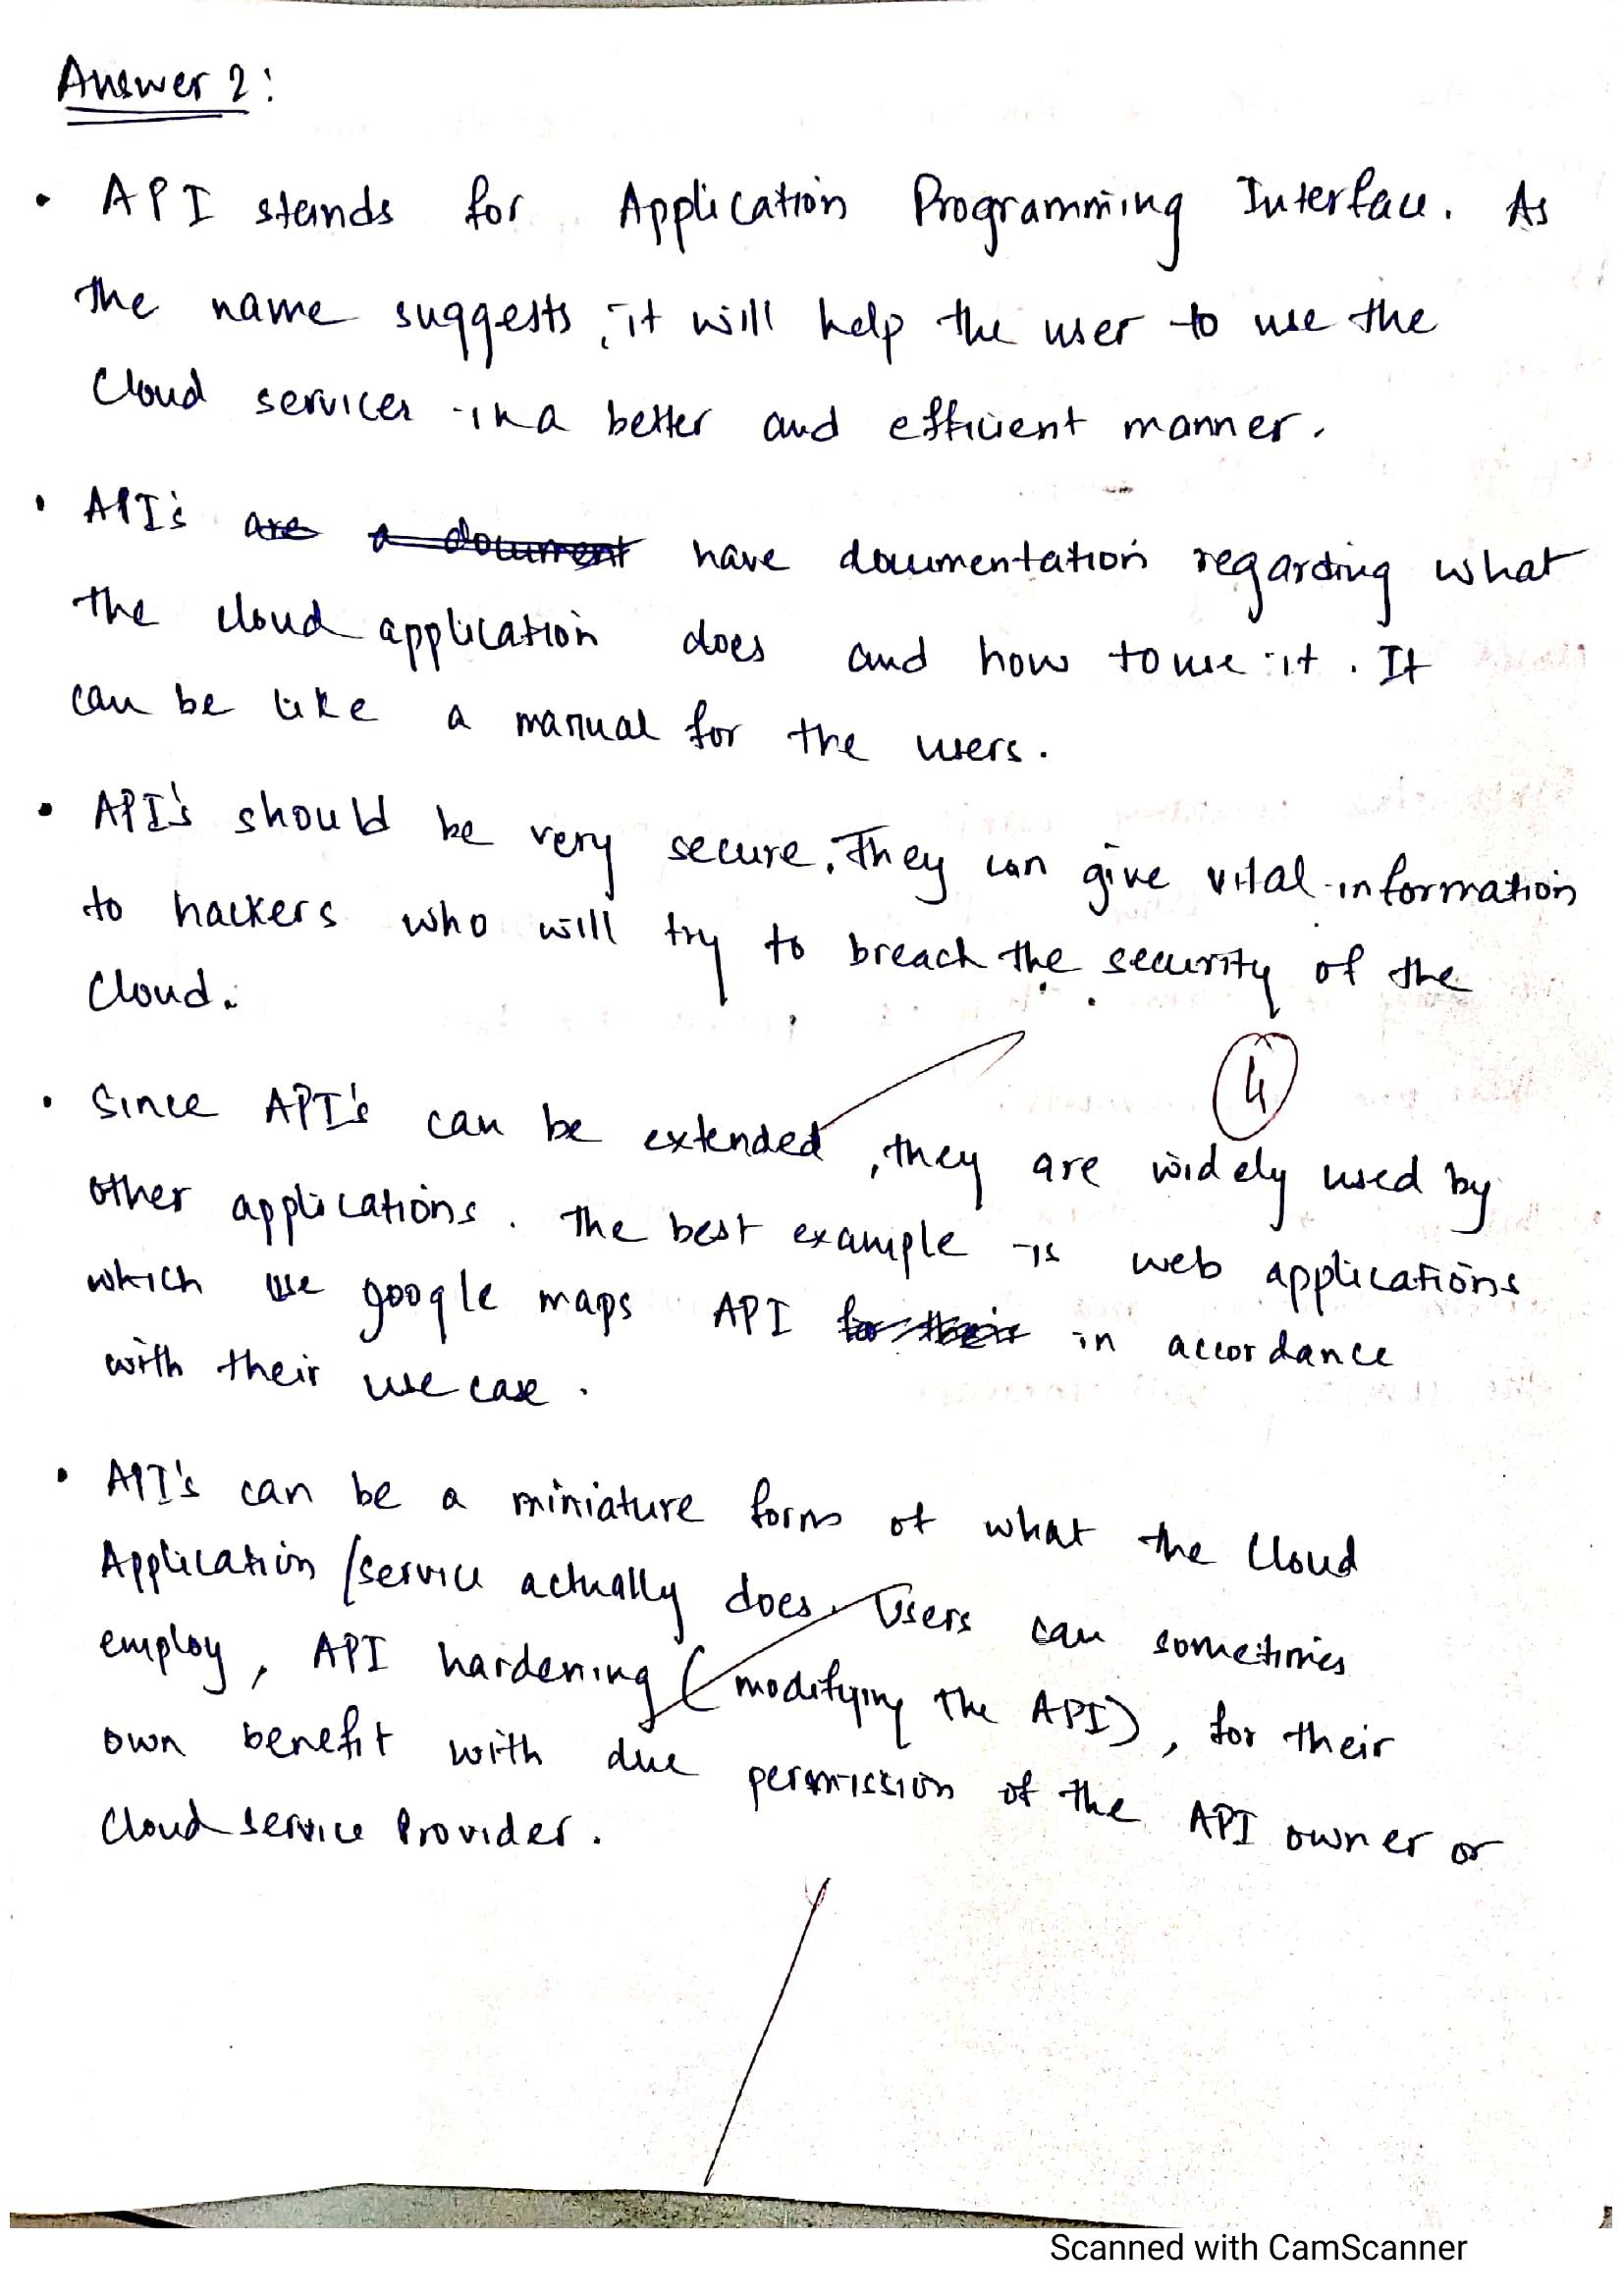 Answer 2:
• API stands for Application Programming Interface. As
the name suggests, it will help the user to use the
Cloud services in a better and efficient manner.
• API's are a document have documentation regarding what
the cloud application does and how to use it. It
can be like a manual for the users.
• API's should be very secure. They can give vital information
to hackers who will try to breach the security of the
Cloud.
4
• Since API's can be extended, they are widely used by
other applications. The best example is web applications
which use google maps API for their in accordance
with their use case.
• API's can be a miniature form of what the Cloud
Application/service actually does. Users can sometimes
employ, API hardening (modifying the API), for their
own benefit with due permission of the API owner or
Cloud Service Provider.
Scanned with CamScanner